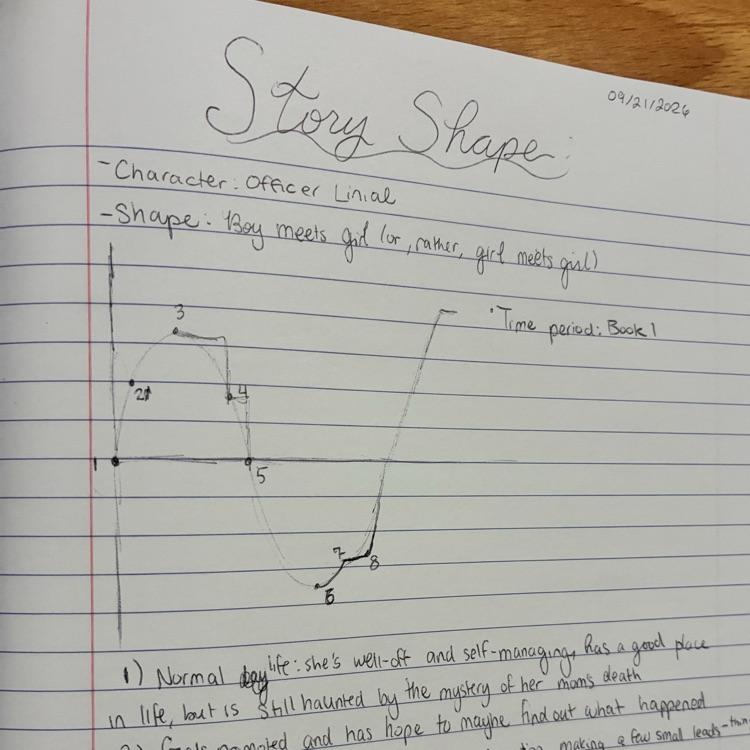 09/21/2026
Story Shape:
- Character: Officer Linial
- Shape: Boy meets girl (or, rather, girl meets girl)
· Time period: Book 1
3
2
4
1
5
7
8
6
1) Normal life: she's well-off and self-managing, has a good place
in life, but is still haunted by the mystery of her mom's death
and has hope to maybe find out what happened
making a few small leads-